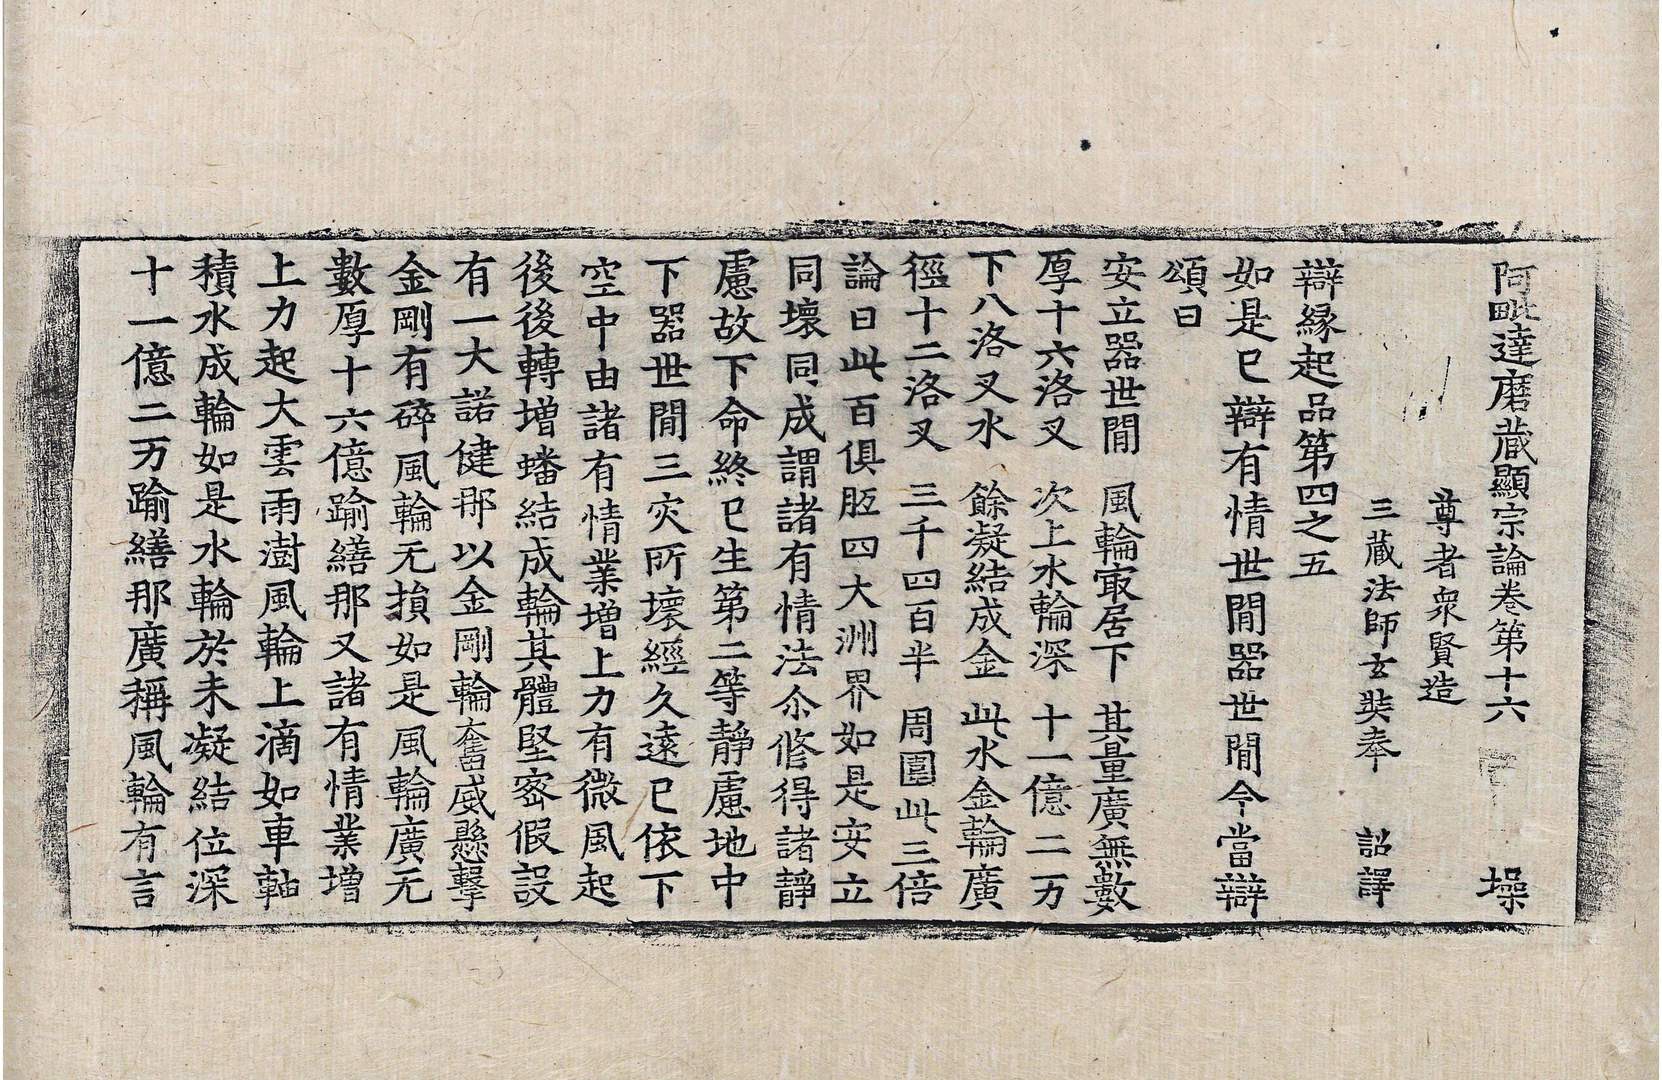 阿毗達磨藏顯宗論卷第十六 堁
尊者衆賢造
三藏法師玄奘奉 詔譯
辯緣起品第四之五
如是已辯有情世間器世間今當辯
頌曰
安立器世間 風輪㝡居下 其量廣無數
厚十六洛叉 次上水輪深 十一億二万
下八洛叉水 餘凝結成金 此水金輪廣
徑十二洛叉 三千四百半 周圍此三倍
論曰此百俱胝四大洲界如是安立
同壞同成謂諸有情法尒修得諸靜
慮故下命終已生第二等靜慮地中
下器世間三灾所壞經久遠已依下
空中由諸有情業增上力有微風起
後後轉增蟠結成輪其體堅密假設
有一大諾健那以金剛輪奮威懸擊
金剛有碎風輪无損如是風輪廣无
數厚十六億踰繕那又諸有情業增
上力起大雲雨澍風輪上滴如車軸
積水成輪如是水輪於未凝結位深
十一億二万踰繕那廣稱風輪有言